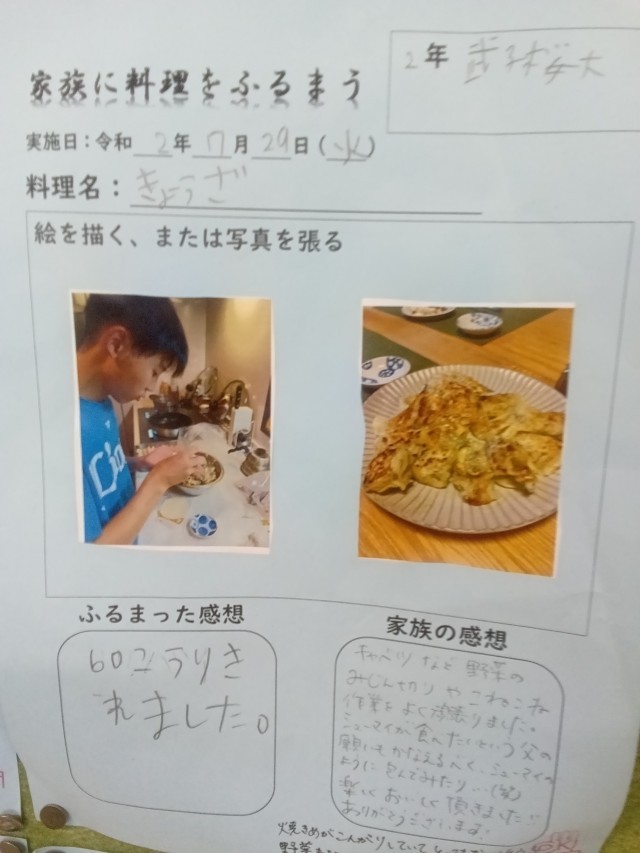 2年
家族に料理をふるまう
実施日：令和 2年 7月 29日（水）
料理名： ぎょうざ
絵を描く、または写真を張る
ふるまった感想
60こうりさ
れました。
家族の感想
キャベツなど野菜の
みじん切りやこねこね
作業をよく頑張りました。
シューマイが食べたいという父の
願いもかなえるべく、シューマイの
ように包んでみたり…(笑)
楽しくおいしく頂きました
ありがとうございます。
焼きめがこんがりしていて
野菜